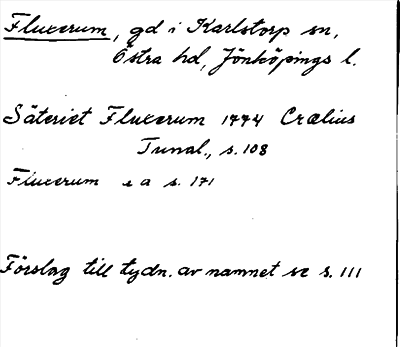 Fluxerum, gd i Karlstorp sn,
Östra hd, Jönköpings l.
Säteriet Fluxerum 1774 Crælius
Tunal., s. 108
Fluxerum e a s. 171
Förslag till tydn. av namnet se s. 111